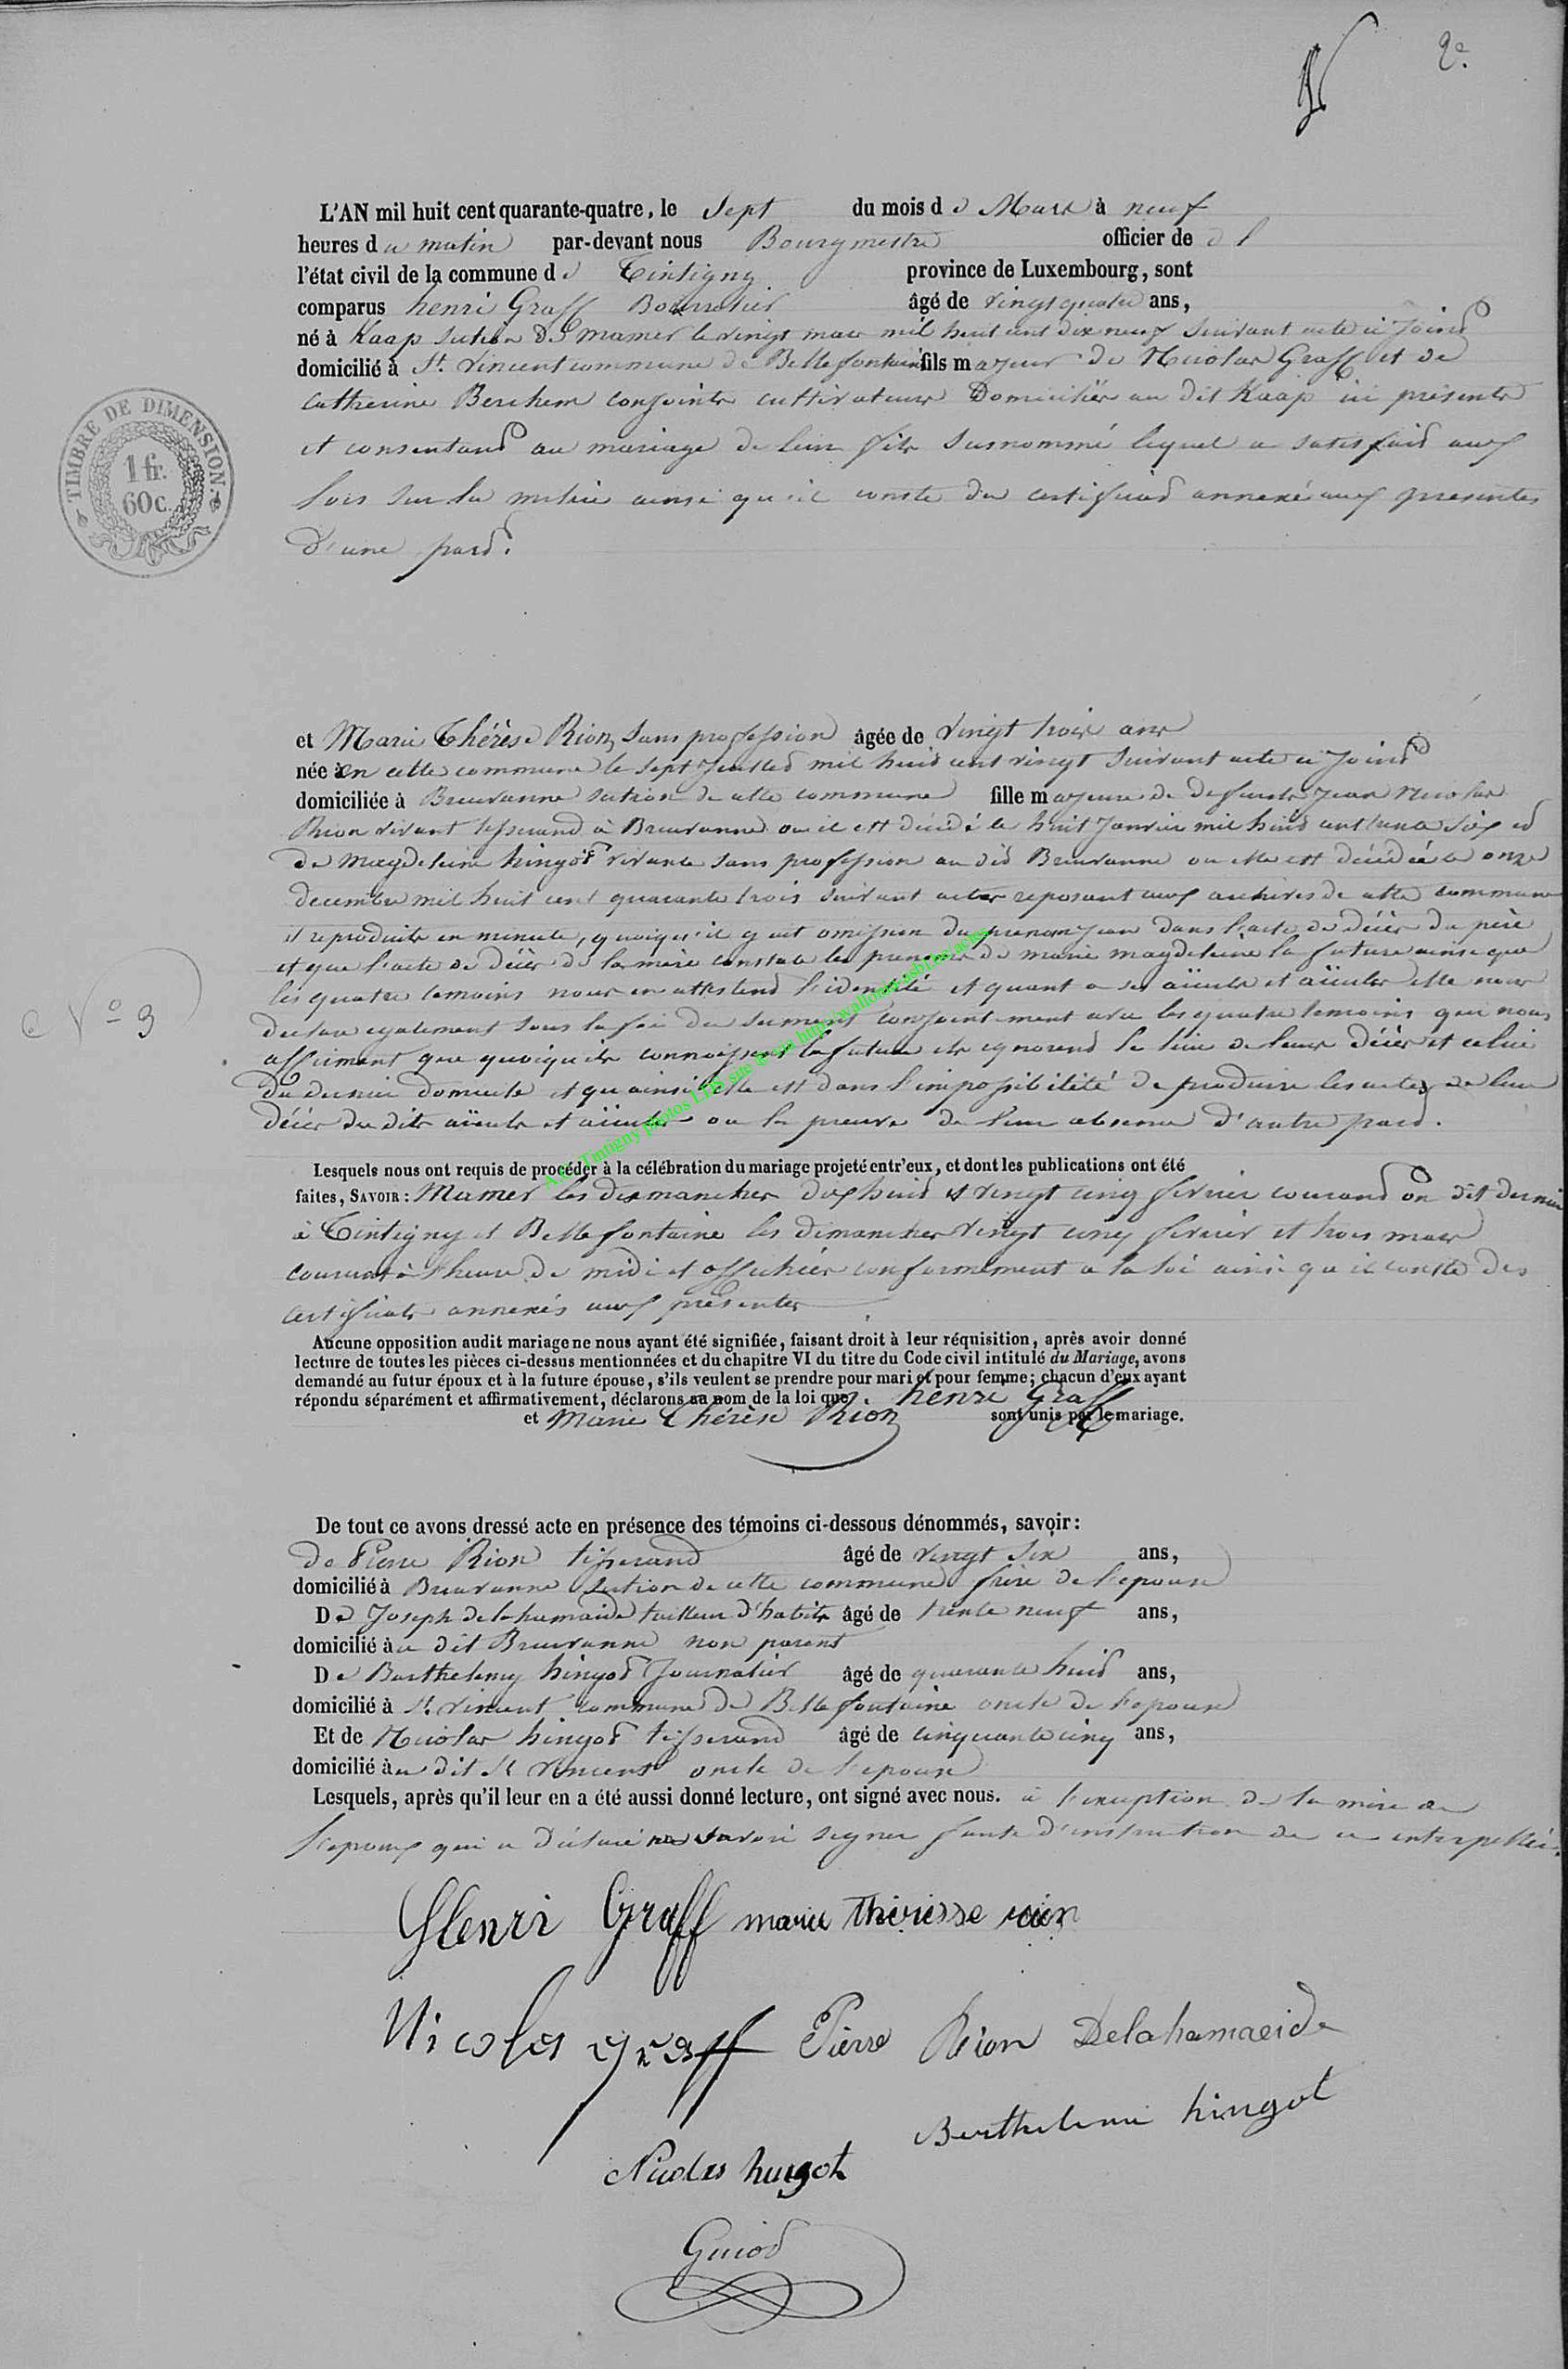 2e.
L'AN mil huit cent quarante-quatre, le sept du mois de Mars à neuf
heures du matin par-devant nous Bourgmestre officier de
l'état civil de la commune de Tintigny province de Luxembourg, sont
comparus henri Graff Bourrelier âgé de vingt quatre ans,
né à Kaap section de Mamer le vingt mars mil huit cent dix neuf suivant acte ci joind
domicilié à St. Vincent commune de Bellefontaine fils majeur de Nicolas Graff et de
Catherine Berchem conjoints cultivateurs Domiciliés au dit Kaap ici présents
et consentand au mariage de leur fils susnommé lequel a satisfaid aux
lois sur la milice ainsi qu'il conste du certificad annexé aux presentes
D'une pard.
TIMBRE DE DIMENSION
1 fr.
60c.
et Marie Thérèse Rion sans profession âgée de vingt trois ans
née à en cette commune le sept Juilled mil huid cent vingt suivant acte ci joind
domiciliée à Breuvanne section de cette commune fille majeure de defunts Jean Nicolas
Rion vivant tisserand à Breuvanne ou il est décédé le huit Janvier mil huid cent trente six ed
de Magdeleine hingot vivante sans profession au did Breuvanne ou elle est décédée le onze
decembre mil huit cent quarante trois suivant actes reposant aux archives de cette commune
et reproduits en minute, quoiqu'il y ait omission du prenom Jean dans l'acte de décès du père
et que l'acte de décès de la mère constate les prenoms de marie magdeleine la future ainsi que
les quatre temoins nous en attestend l'identité et quant a ses aïeuls et aïeules elle nous
declare egalement sous la foi du serment conjointement avec les quatre temoins que nous
N° 3
affirment que quoiqu'ils connoissent la future ils ignorend le lieu de leurs décès et celui
du dernier domicile et qu'ainsi elle est dans l'impossibilité de produire les actes de leur
décès des dits aïeuls et aïeules ou la preuve de leur absence d'autre pard.
A.C. Tintigny photos LDS sur @ via http://wallonica-asbl.be/actes
Lesquels nous ont requis de procéder à la célébration du mariage projeté entr'eux, et dont les publications ont été
faites, SAVOIR: Mamer les dimanches dix huid et vingt cinq fevrier courand on dit dernier
à Tintigny et Bellefontaine les dimanches vingt cinq fevrier et trois mars
courant à l'heure de midi et affichées conformement a la loi ainsi qu'il conste des
certificats annexés aux presentes
Aucune opposition audit mariage ne nous ayant été signifiée, faisant droit à leur réquisition, après avoir donné
lecture de toutes les pièces ci-dessus mentionnées et du chapitre VI du titre du Code civil intitulé du Mariage, avons
demandé au futur époux et à la future épouse, s'ils veulent se prendre pour mari et pour femme; chacun d'eux ayant
répondu séparément et affirmativement, déclarons au nom de la loi que henri Graff
et Marie Thérèse Rion sont unis par le mariage.
De tout ce avons dressé acte en présence des témoins ci-dessous dénommés, savoir:
de Pierre Rion tisserand âgé de vingt six ans,
domicilié à Breuvanne section de cette commune frère de l'epouse
De Joseph delahamaide tailleur d'habits âgé de trente neuf ans,
domicilié au dit Breuvanne non parent
De Barthelemy hingot Journalier âgé de quarante huid ans,
domicilié à St. Vincent commune de Bellefontaine oncle de l'epouse
Et de Nicolas hingot tisserand âgé de cinquante cinq ans,
domicilié au dit St Vincent oncle de l'epouse
Lesquels, après qu'il leur en a été aussi donné lecture, ont signé avec nous. à l'exception de la mère de
l'epoux qui a déclaré ne savoir signer faute d'instruction de ce interpellée.
Henri Graff marie Thérisse rion
Nicolas graff Pierre Rion Delahamaeide
Barthelemi hingot
Nicolas hingot
Guiod